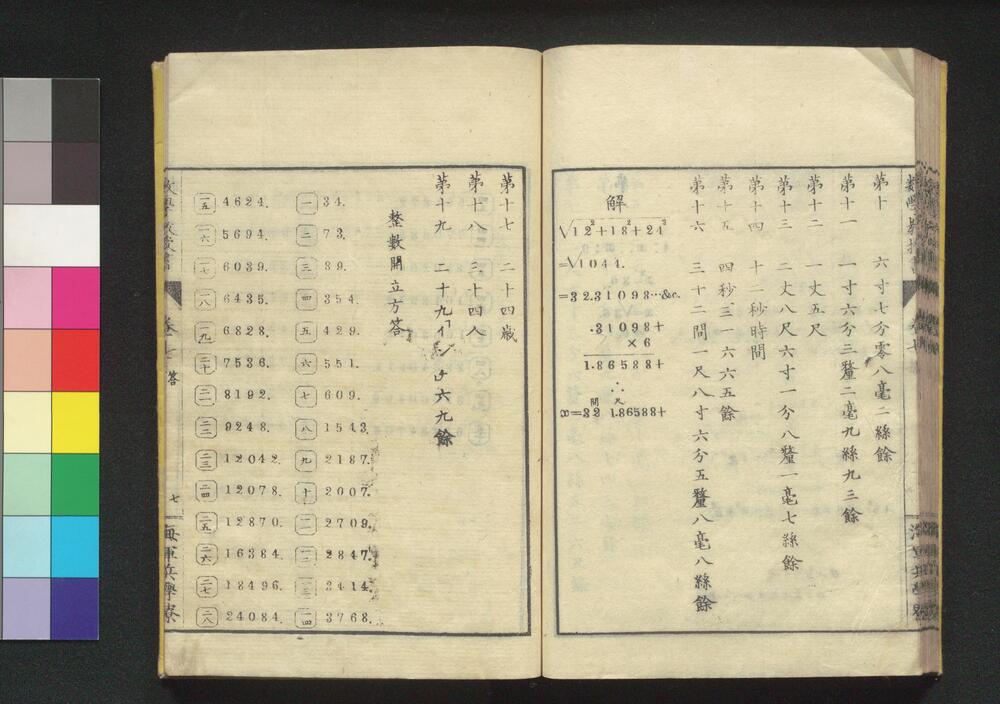 第十 六寸七分零八毫二絲餘
第十一 一寸六分三釐二毫九絲九三餘
第十二 一丈五尺
第十三 二丈八尺六寸一分八釐一毫七絲餘
第十四 十二秒時間
第十五 四秒三一六六五餘
第十六 三十二間一尺八寸六分五釐八毫八絲餘
解
√12²+18²+24²
=√1044.
=32.31098…&c.
.31098+
×6
1.86588+
∴
間 尺
∞=32 1.86588+
第十七 二十四歲
第十八 三十四人
第十九 二十九
六九餘
整數開立方答
一 34.
二 73.
三 89.
四 354.
五 429.
六 551.
七 609.
八 1543.
九 2187.
十 2007.
一一 2709.
一二 2847.
一三 3414.
一四 3768.
一五 4624.
一六 5694.
一七 6039.
一八 6435.
一九 6828.
二十 7536.
二一 8192.
二二 9248.
二三 12042.
二四 12078.
二五 12870.
二六 16384.
二七 18496.
二八 24084.
答
七
海軍兵學寮